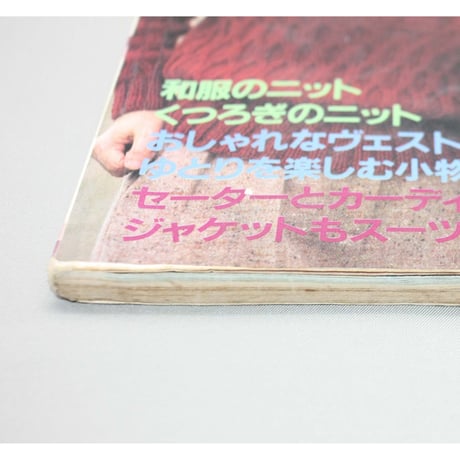 和服のニット
くつろぎのニット
おしゃれなヴェスト
ゆとりを楽しむ小物
セーターとカーディ
ジャケットもスーツ